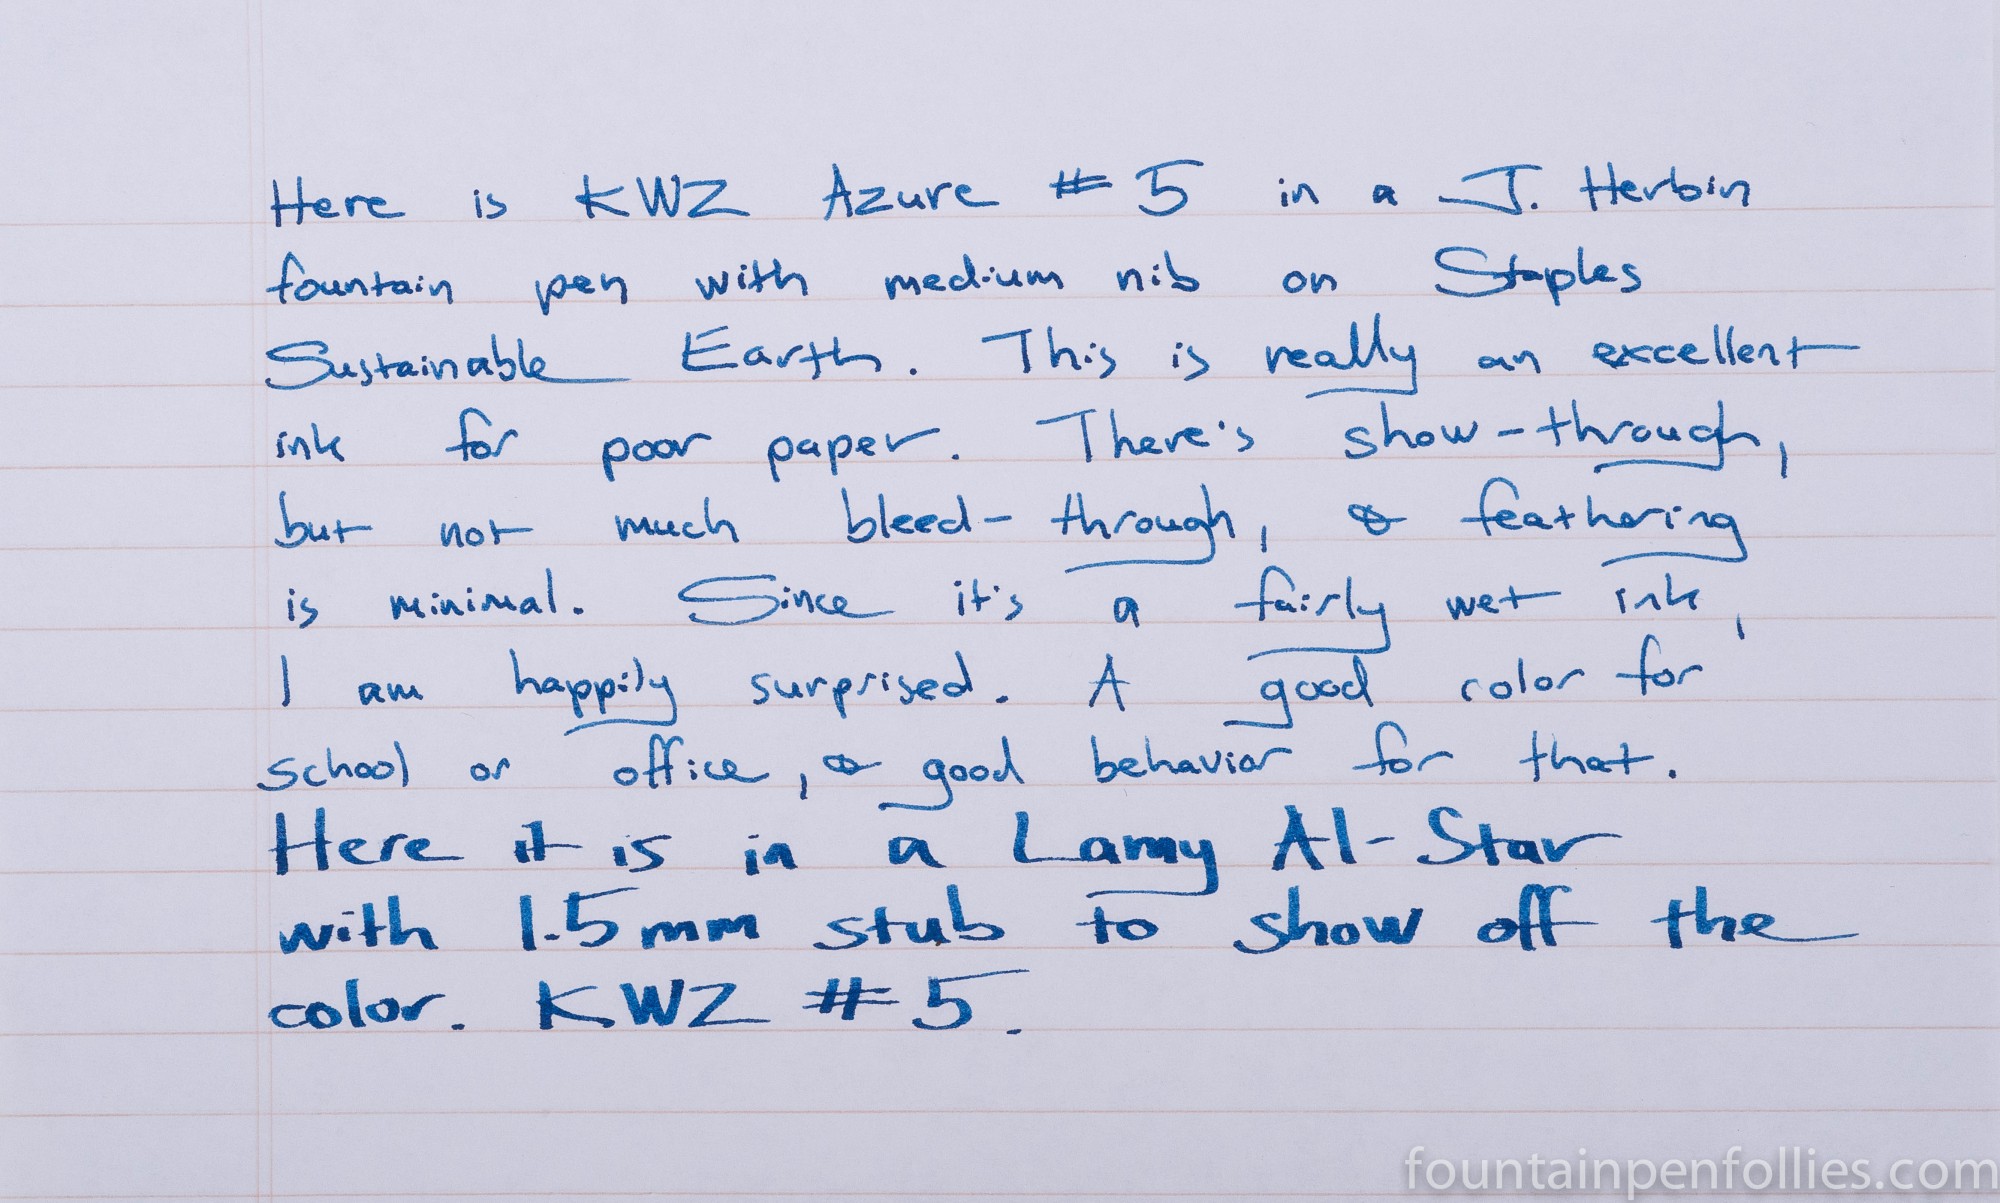 Here is KWZ Azure #5 in a J. Herbin
fountain pen with medium nib on Staples
Sustainable Earth. This is really an excellent
ink for poor paper. There's show-through,
but not much bleed-through, & feathering
is minimal. Since it's a fairly wet ink,
I am happily surprised. A good color for
school or office, & good behavior for that.
Here it is in a Lamy Al-Star
with 1.5mm stub to show off the
color. KWZ #5.
fountainpenfollies.com